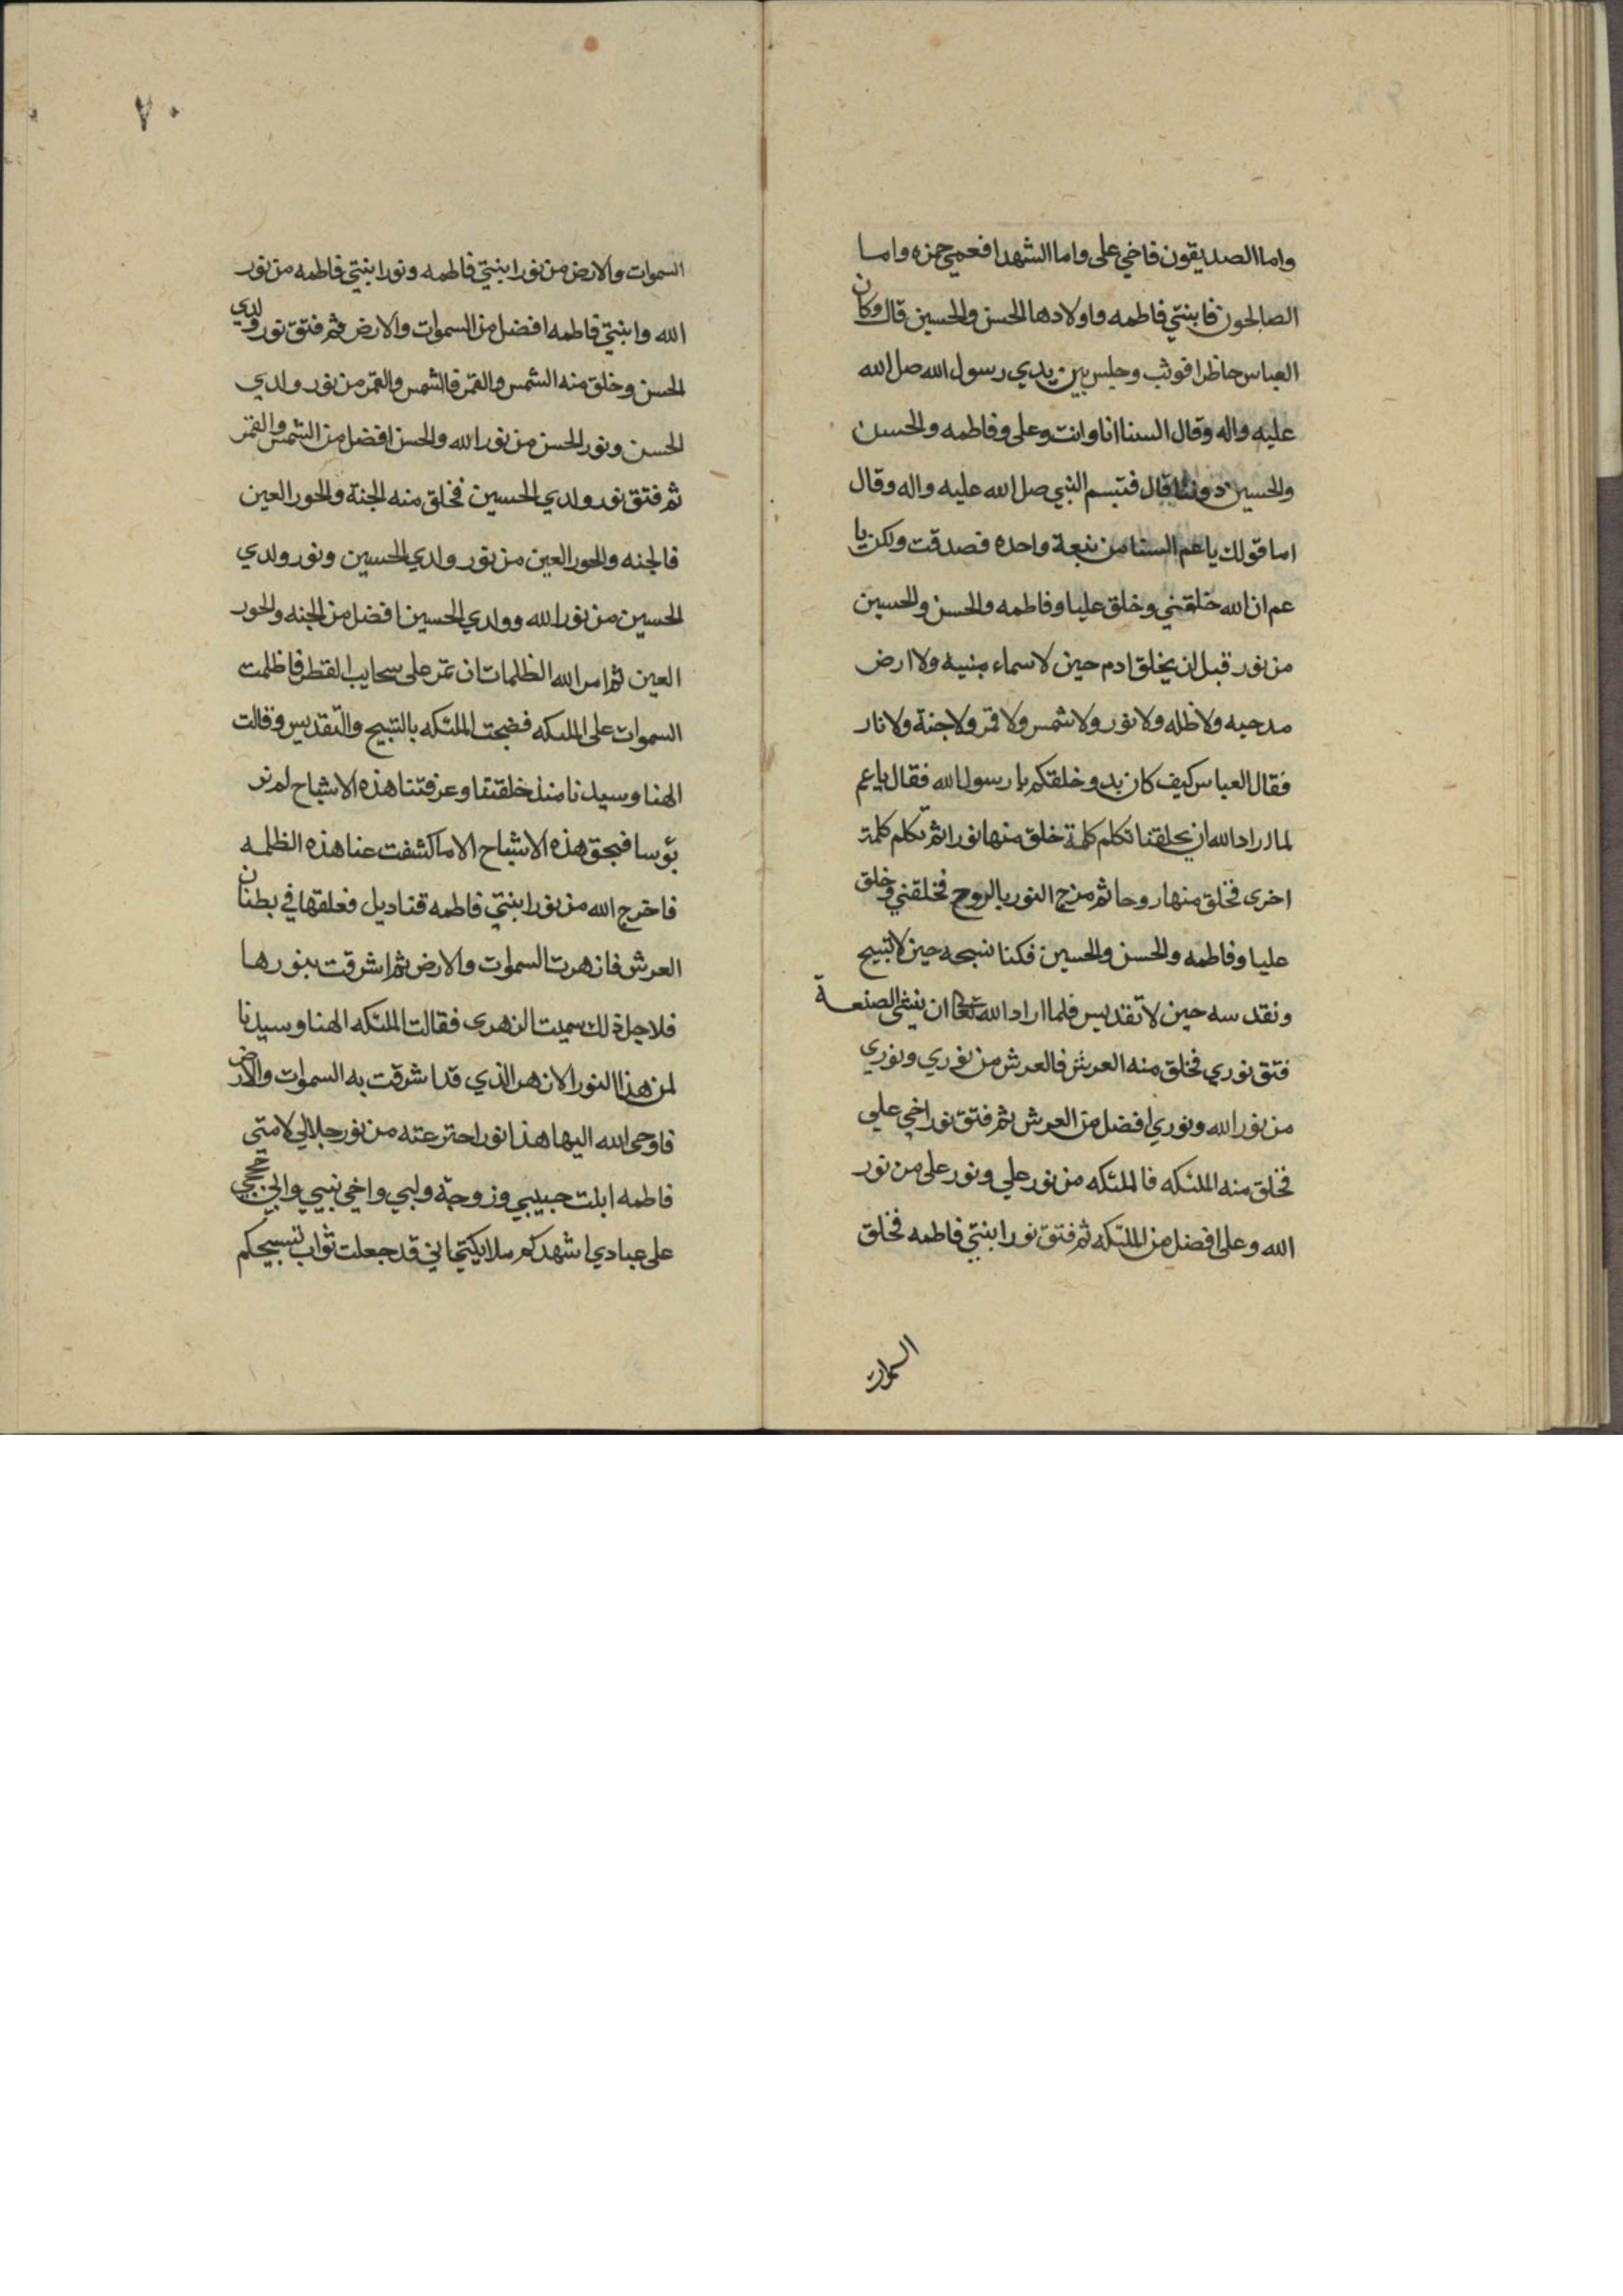 واما الصديقون فاخي على واما الشهدا فعمي حمزه واما
الصالحون فابنتي فاطمه واولادها الحسن والحسين قال وكان
العباس حاظرا فوثب وجلس بين يدي رسول الله صل الله
عليه واله وقال السنا انا وانت وعلى وفاطمه والحسن
والحسين دوننا قال فتبسم النبي صل الله عليه واله وقال
اما قولك يا عم السنا من نبعة واحده فصدقت ولكن يا
عم ان الله خلقني وخلق عليا وفاطمه والحسن والحسين
من نور قبل ان يخلق ادم حين لا سماء مبنيه ولا ارض
مدحيه ولا ظله ولا نور ولا شمس ولا قمر ولا جنة ولا نار
فقال العباس كيف كان بدو خلقكم يا رسول الله فقال يا عم
لما اراد الله ان يخلقنا تكلم كلمة خلق منها نورا ثم تكلم كلمة
اخرى فخلق منها روحا ثم مزج النور بالروح فخلقني وخلق
عليا وفاطمه والحسن والحسين فكنا نسبحه حين لا تسبيح
ونقدسه حين لا تقديس فلما اراد الله تعالى ان ينشئ الصنعة
فتق نوري فخلق منه العرش فالعرش من نوري ونوري
من نور الله ونوري افضل من العرش ثم فتق نور اخي علي
فخلق منه الملئكه فالملئكه من نور علي ونور على من نور
الله وعلى افضل من الملئكه ثم فتق نور ابنتي فاطمه فخلق
السموات
٧٠
السموات والارض من نور ابنتي فاطمه ونور ابنتي فاطمه من نور
الله وابنتي فاطمه افضل من السموات والارض ثم فتق نور ولدي
الحسن وخلق منه الشمس والقمر فالشمس والقمر من نور ولدي
الحسن ونور الحسن من نور الله والحسن افضل من الشمس والقمر
ثم فتق نور ولدي الحسين فخلق منه الجنة والحور العين
فالجنه والحور العين من نور ولدي الحسين ونور ولدي
الحسين من نور الله وولدي الحسين افضل من الجنه والحور
العين ثم امر الله الظلمات ان تمر على سحايب القطر فاظلمت
السموات على الملئكه فضجت الملئكه بالتسبيح والتقديس وقالت
الهنا وسيدنا منذ خلقتنا وعرفتنا هذه الاشباح لم نر
بؤسا فبحق هذه الاشباح الا ما كشفت عنا هذه الظلمه
فاخرج الله من نور ابنتي فاطمه قناديل فعلقها في بطنان
العرش فازهرت السموات والارض ثم اشرقت بنورها
فلاجل ذلك سميت الزهرى فقالت الملئكه الهنا وسيدنا
لمن هذا النور الازهر الذي قد اشرقت به السموات والارض
فاوحى الله اليها هذا نور اخترعته من نور جلالي لامتي
فاطمه ابنت حبيبي وزوجة وليي واخي نبيي وابي حججي
على عبادي اشهدكم ملايكتي اني قد جعلت ثواب تسبيحكم